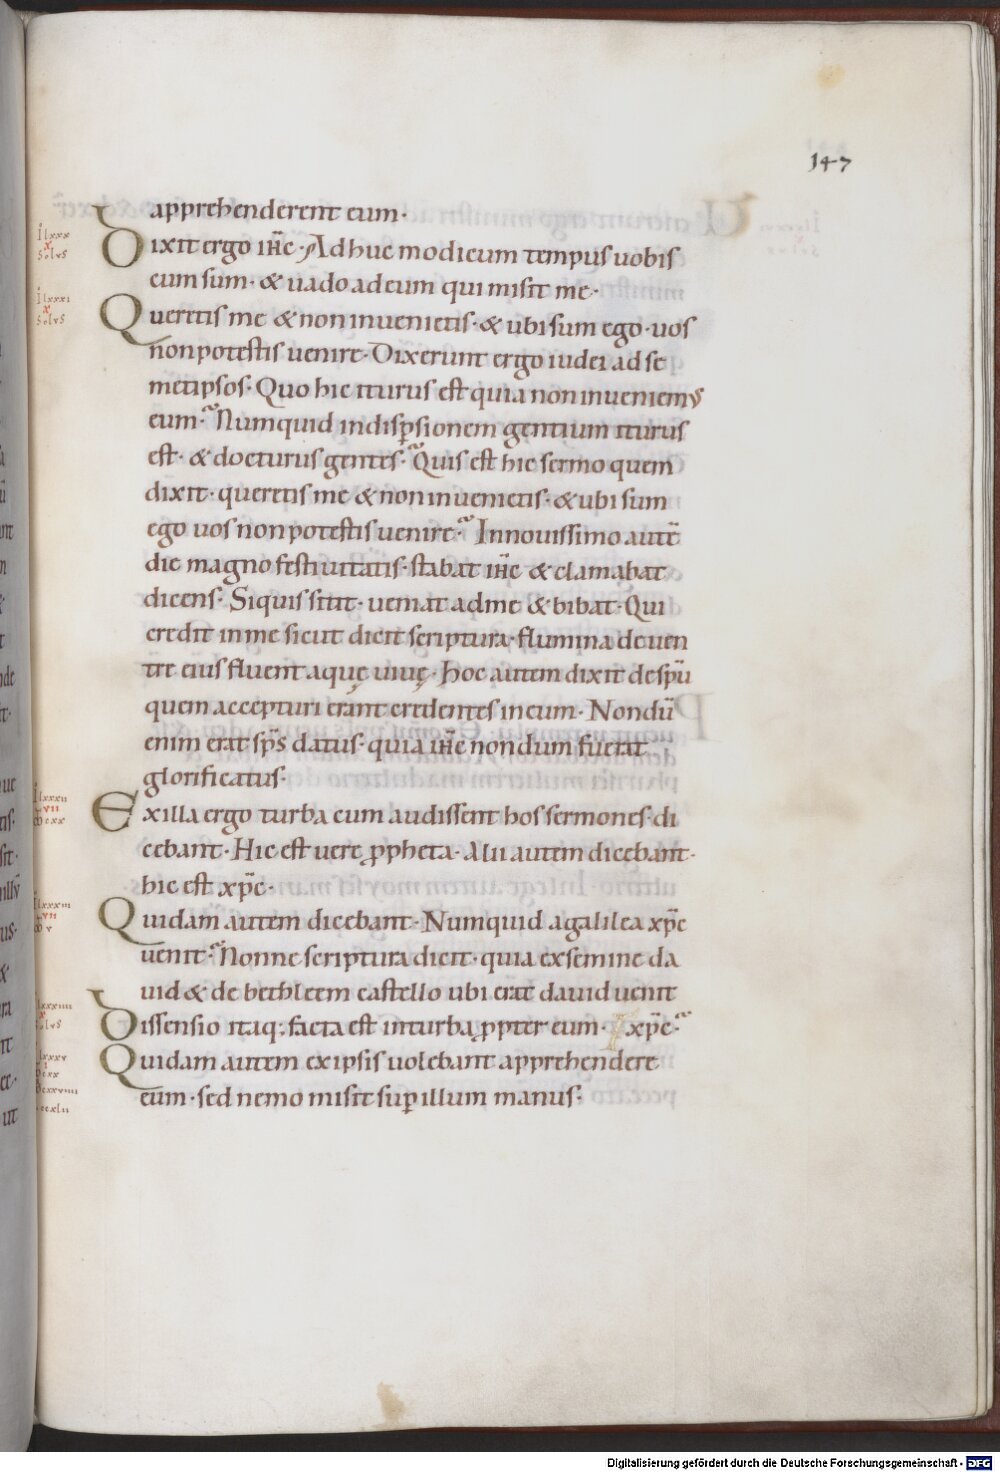 147
apprehenderent eum·
Dixit ergo ih̄c· Adhuc modicum tempus uobis
cum sum· & uado ad eum qui misit me·
Queretis me & non inuenietis· & ubi sum ego· uos
non potestis uenire· Dixerunt ergo iudei ad se
metipsos· Quo hic iturus est quia non inueniemus
eum· Numquid in disp̱sionem gentium iturus
est· & docturus gentes· Quis est hic sermo quem
dixit· queretis me & non inuenietis· & ubi sum
ego uos non potestis uenire· In nouissimo aut̄e
die magno festiuitatis· stabat ih̄c & clamabat
dicens· Siquis sitit· ueniat ad me & bibat· Qui
credit in me sicut dicit scriptura· flumina de uen
tre eius fluent aquę uiuę· Hoc autem dixit de sp̄u
quem accepturi erant credentes in eum· Nondū
enim erat sp̄s datus· quia ih̄c nondum fuerat
glorificatus·
Ex illa ergo turba cum audissent hos sermones· di
cebant· Hic est uere ꝓpheta· Alii autem dicebant·
hic est xp̄c·
Quidam autem dicebant· Numquid a galilea xp̄c
uenit· Nonne scriptura dicit· quia ex semine da
uid & de bethleem castello ubi erat dauid uenit
xp̄c·
Dissensio itaq; facta est in turba ꝓpter eum·
Quidam autem ex ipsis uolebant apprehendere
eum· sed nemo misit sup̱ illum manus·
Digitalisierung gefördert durch die Deutsche Forschungsgemeinschaft - DFG